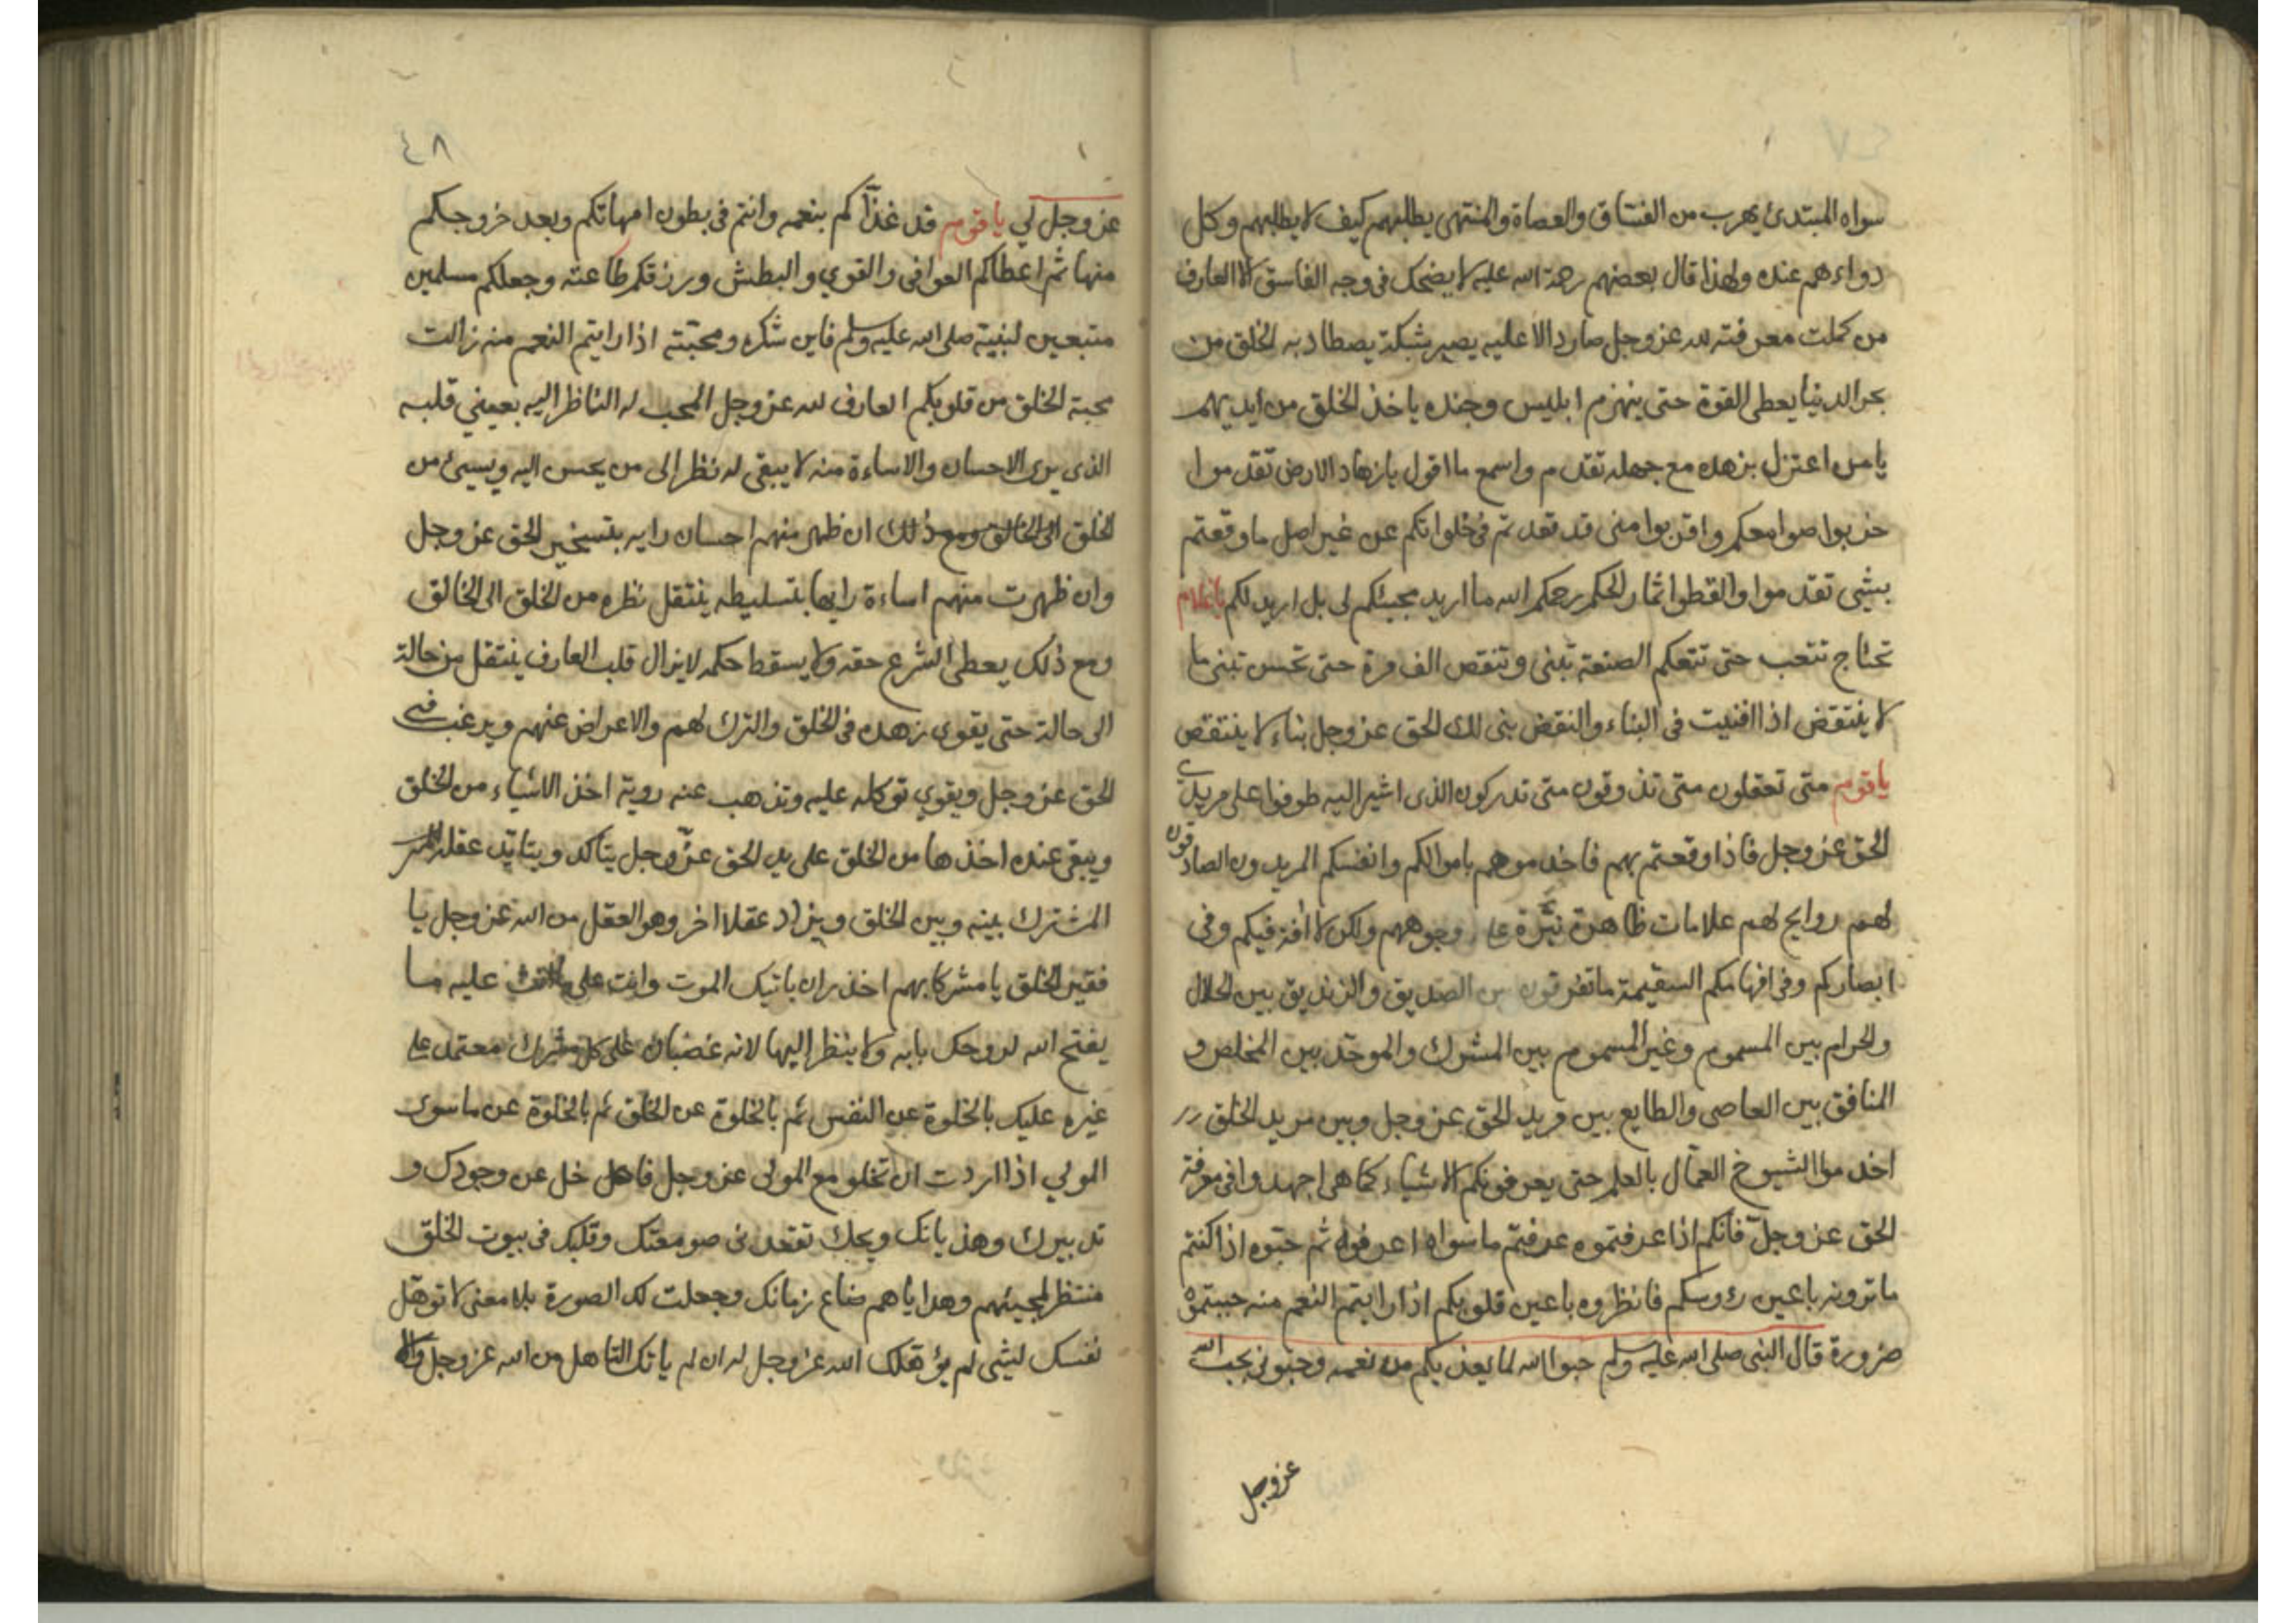 سواه المبتدئ يهرب من الفساق والعصاة والمنتهى يطلبهم كيف لا يطلبهم وكل
دواءهم عنده ولهذا قال بعضهم رحمة الله عليه لا يضحك في وجه الفاسق الا العارف
من كملت معرفته لله عز وجل صار دالا عليه يصير شبكة يصطاد به الخلق من
بحر الدنيا يعطى القوة حتى ينهزم ابليس وجنده ياخذ الخلق من ايديهم
يا من اعتزل بزهده مع جهله تقدم واسمع ما اقول يا زهاد الارض تقدموا
خربوا صوامعكم واقربوا منى قد قعدتم في خلواتكم عن غير اصل ما وقعتم
بشى تقدموا والقطوا ثمار الحكم رحمكم الله ما اريد مجيئكم لى بل اريد لكم يا غلام
تحتاج تتعب حتى تتعكم الصنعة تبنى وتنقص الف مرة حتى تحسن تبنى ما
لا ينتقض اذا افنيت في البناء والنقض بنى لك الحق عز وجل بناء لا ينتقض
يا قوم متى تعقلون متى تذوقون متى تدركون الذى اشير اليه طوفوا على مريدي
الحق عز وجل فاذا وقعتم بهم فاخدموهم باموالكم وانفسكم المريدون الصادقون
لهم روايح لهم علامات ظاهرة نيرة على وجوههم ولكن الافة فيكم وفي
ابصاركم وفي افهامكم السقيمة ما تفرقون بين الصديق والزنديق بين الحلال
والحرام بين المسموم وغير المسموم بين المشرك والموحد بين المخلص و
المنافق بين العاصى والطايع بين مريد الحق عز وجل وبين مريد الخلق
اخدموا الشيوخ العمال بالعلم حتى يعرفونكم الاشياء كما هى اجهدوا في معرفة
الحق عز وجل فانكم اذا عرفتموه عرفتم ما سواه اعرفوه ثم حبوه اذا كنتم
ما ترونه باعين رءوسكم فانظروه باعين قلوبكم اذا رايتم النعم منه حببتموه
ضرورة قال النبى صلى الله عليه وسلم حبوا الله لما يغذيكم من نعمه وحبونى بحب الله
عز وجل
٤٨
عز وجل لي يا قوم قد غذاكم بنعمه وانتم في بطون امهاتكم وبعد خروجكم
منها ثم اعطاكم العوافى والقوي والبطش ورزقكم طاعته وجعلكم مسلمين
متبعين لنبيه صلى الله عليه وسلم فاين شكره ومحبته اذا رايتم النعم منه زالت
محبة الخلق من قلوبكم العارف لله عز وجل المحب له الناظر اليه بعينى قلبه
الذى يرى الاحسان والاساءة منه لا يبقى له نظر الى من يحسن اليه ويسيئ من
الخلق الى الخالق ومع ذلك ان ظهر منهم احسان رايه بتسخير الحق عز وجل
وان ظهرت منهم اساءة رايها بتسليطه ينتقل نظره من الخلق الى الخالق
ومع ذلك يعطى الشرع حقه ولا يسقط حكمه لايزال قلب العارف ينتقل من حالة
الى حالة حتى يقوى زهده في الخلق والترك لهم والاعراض عنهم ويرغب في
الحق عز وجل ويقوي توكله عليه وتذهب عنه روية اخذ الاشياء من الخلق
ويبقى عنده اخذها من الخلق على يد الحق عز وجل يتاكد ويتايد عقله
المشترك بينه وبين الخلق ويزاد عقلا اخر وهو العقل من الله عز وجل يا
فقير الخلق يا مشركا بهم احذر ان ياتيك الموت وانت على ما انت عليه ما
يفتح الله لروحك بابه ولا ينظر اليها لانه غضبان على كل مشرك معتمد على
غيره عليك بالخلوة عن النفس ثم بالخلوة عن الخلق ثم بالخلوة عن ما سوى
المولي اذا اردت ان تخلو مع المولى عز وجل خل عن وجودك و
تدبيرك وهذيانك ويحك تقعد فى صومعتك وقلبك في بيوت الخلق
منتظر لمجيئهم وهداياهم ضاع زمانك وجعلت لك الصورة بلا معنى لا توهل
نفسك لشى لم يؤهلك الله عز وجل له ان لم ياتك التاهل من الله عز وجل والا